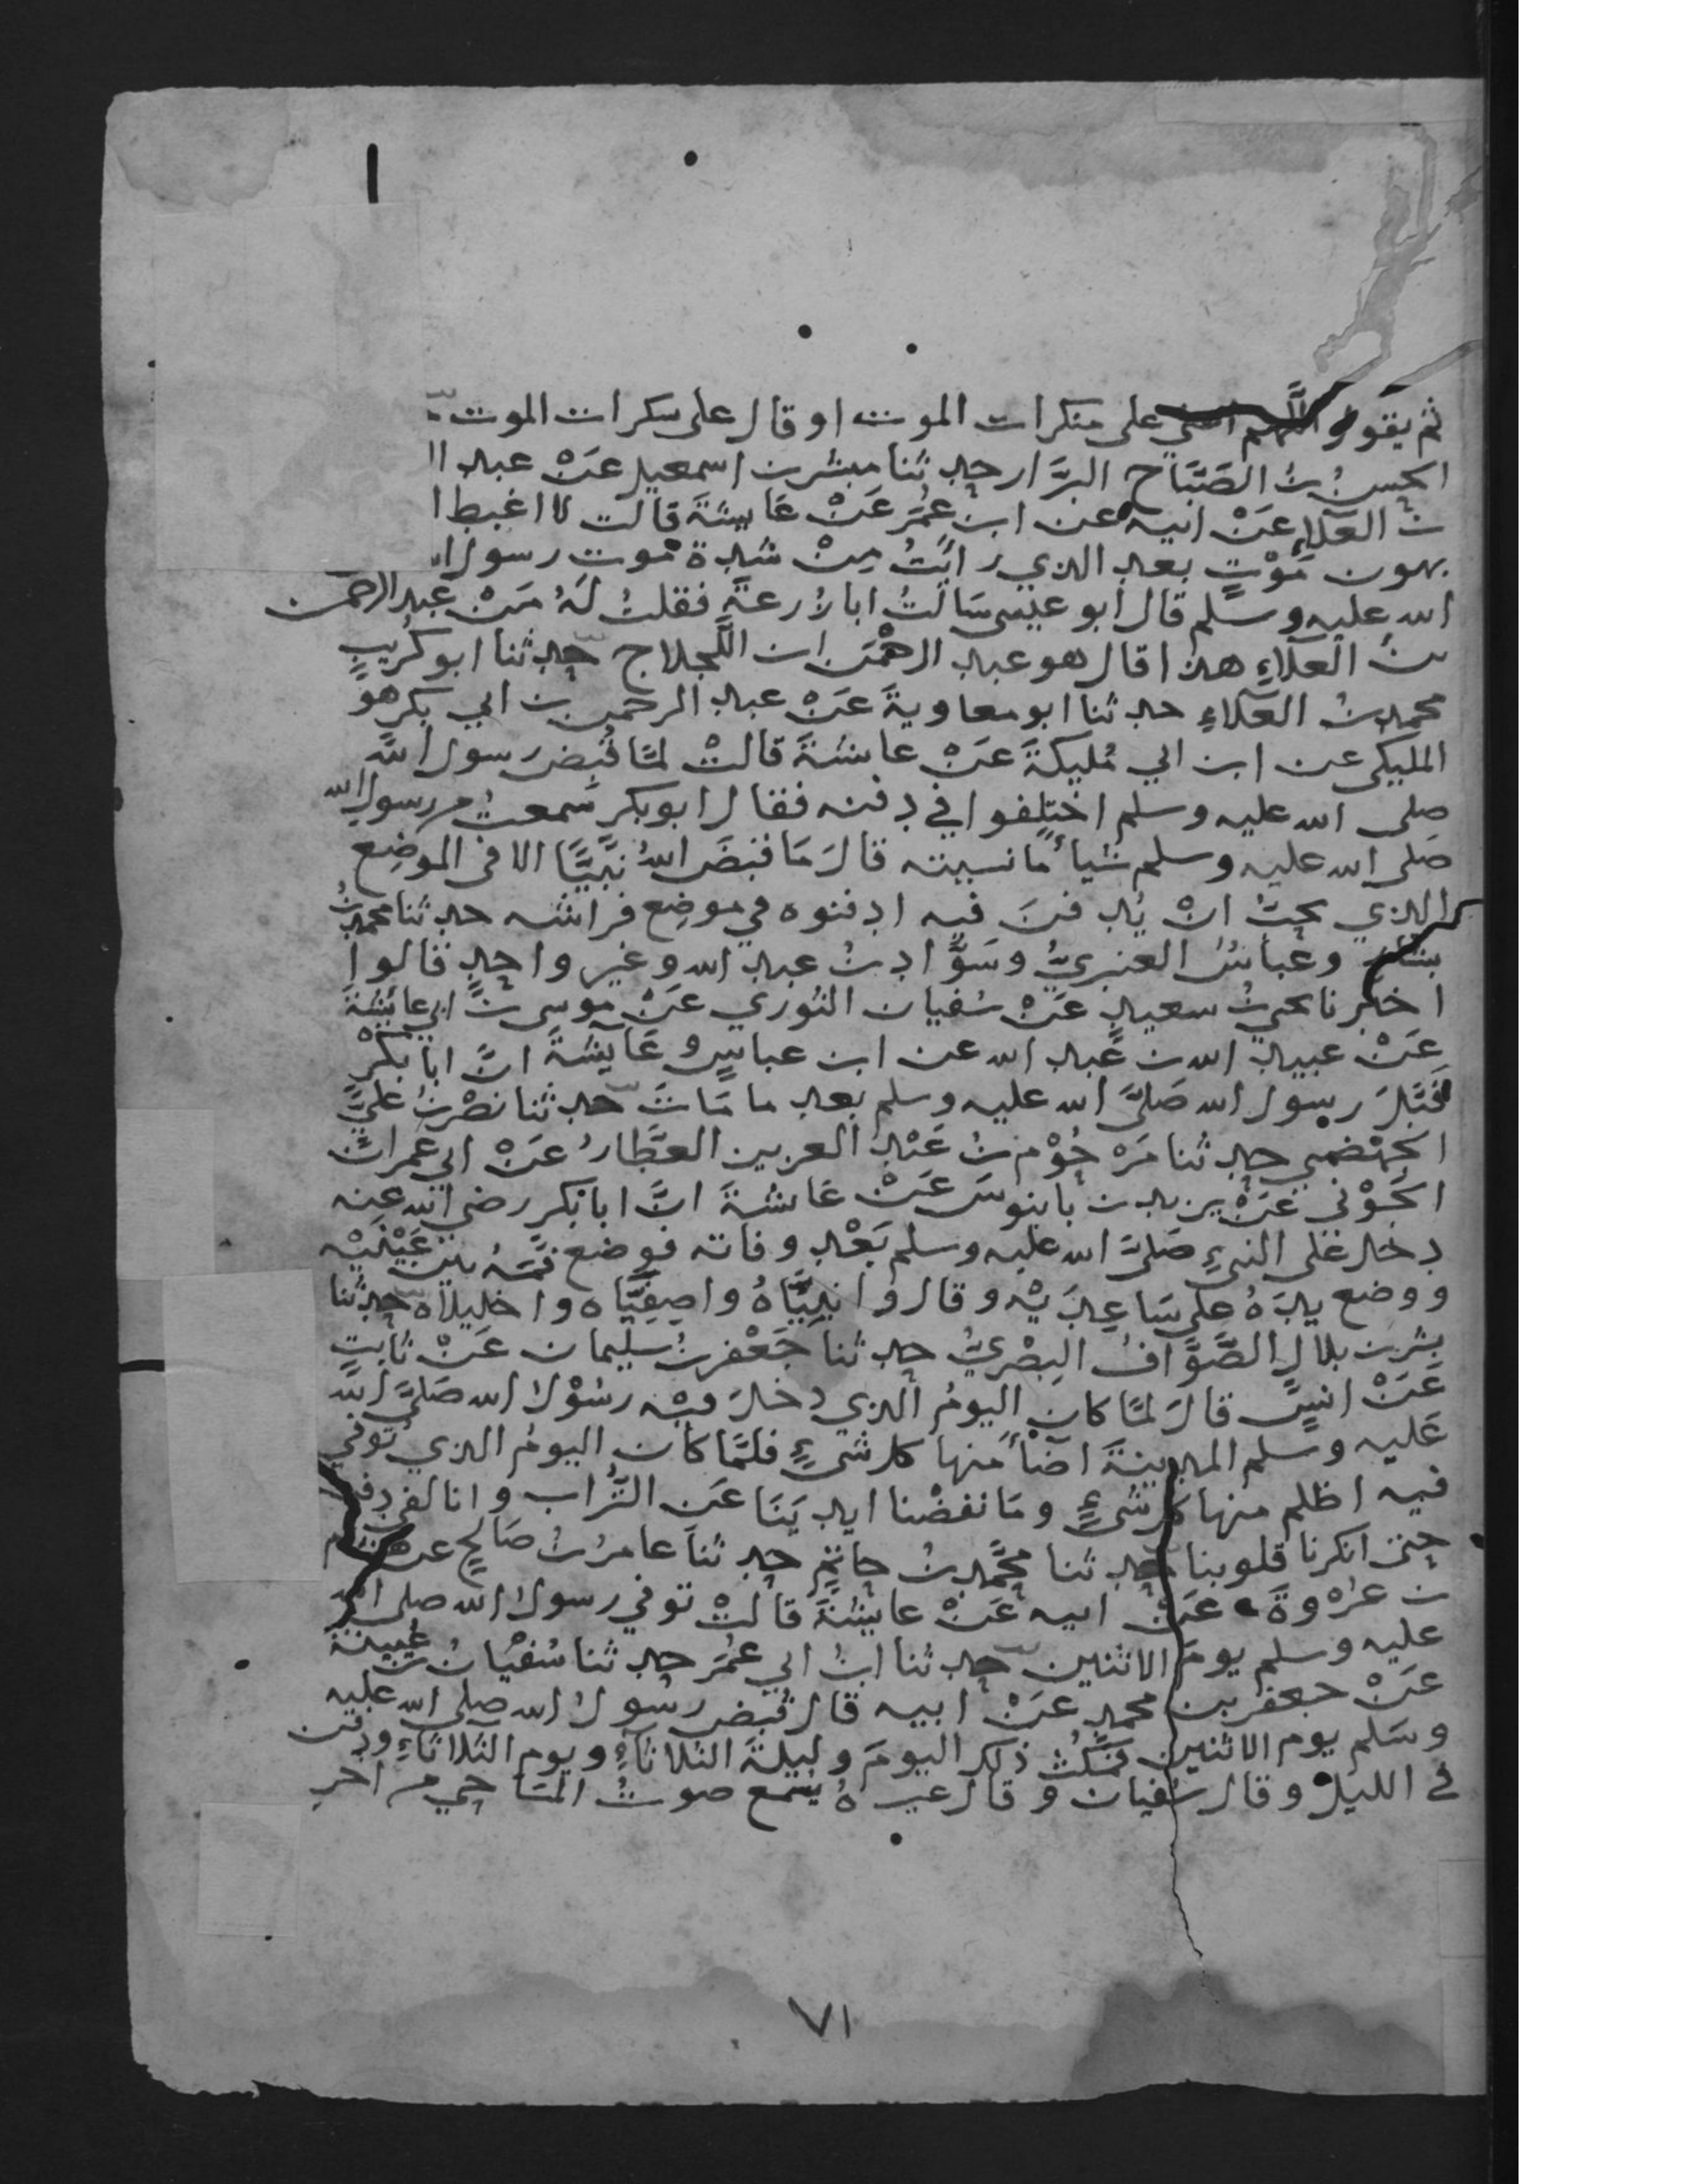 ثم يقول اللهم اعني على منكرات الموت او قال على سكرات الموت
الحسن بن الصَّبَّاح البزَّار حدثنا مبشر بن اسمعيل عَنْ عبد ال
بن العَلاءِ عَنْ ابيه عن ابن عُمَرَ عَنْ عَايشةَ قالت لا اغبط ا
بهون مَوْتٍ بعد الذي رايتُ مِنْ شدة موت رسول ا
الله عليه وسلم قال ابو عيسى سَالتُ ابا زرعةَ فقلتُ لَهُ مَنْ عَبد الرحمن
بنُ العَلاءِ هذا قال هو عبد الرحْمَن ابن اللَّجلاج حدثنا ابو كُرَيبٍ
محمد بنُ العَلاءِ حدثنا ابو معاويةَ عَنْ عبد الرحمن بن ابي بكر هو
المليكي عن ابن ابي مُليكةَ عَنْ عايشةَ قالتْ لمَّا قُبِضَ رسول الله
صلى الله عليه وسلم اختلفوا في دفنه فقال ابو بكر سَمعتُ من رسول الله
صَلى الله عليه وسلم شياً مَا نسيته قالَ مَا قبَضَ اللهُ نَبيًّا الا في الموضِع
الذي يحبُّ انْ يُدفنَ فيه ادفنوه في موضِع فراشه حدثنا محمد بنُ
بشار وعَباسُ العنبريُّ وسَوَّاد بنُ عبد الله وغير واحِدٍ قالوا
اخبرنا يحيى بنُ سعيدٍ عَنْ سُفيان الثوري عَنْ موسى بن ابي عايشةَ
عَنْ عبيد الله بن عَبد الله عن ابن عباسٍ وعَايشةَ انَّ ابا بكْرٍ
قَبَّلَ رسول الله صَلىَّ الله عليه وسلم بعد ما مَاتَ حدثنا نصْر بنُ عليٍّ
الجهْضمي حدثنا مَرْحُوْم بنُ عَبْد العزيز العطَّارُ عَنْ ابي عمران
الجَوْني عَنْ يزيد بن بابنوسَ عَنْ عَايشةَ انَّ ابا بَكرٍ رضي الله عنه
دخل عَلى النبيءِ صَلىَّ الله عليه وسلم بَعْد وفاته فوضع فمَهُ بين عَيْنَيْه
ووضع يدَهُ على سَاعِدَيْه وقال وانَبِيَّاهُ واصفِيَّاه واخليلاه حدثنا
بشر بن بلال الصَّوَّافُ البصْريُّ حدثنا جَعْفر بنُ سليمان عَنْ ثابتٍ
عَنْ انسٍ قالَ لمَّا كان اليومُ الذي دخلَ فيْه رسُوْل الله صَلىَّ الله
عَليه وسلم المدينةَ اضاَ منها كل شيءٍ فلمَّا كان اليومُ الذي تُوفي
فيه اظلم منها كل شيءٍ ومَا نفضْنا ايديَنَا عَن التُّراب وانا لفي دفنه
حتى انكرنا قلوبنا حدثنا محمَّد بنُ حاتمٍ حدثنا عامرُ بنُ صَالحٍ عن هشام
بن عرْوةَ عَنْ ابيه عَنْ عايشةَ قالتْ توفي رسول الله صلى الله
عليه وسلم يومَ الاثنين حدثنا ابنُ ابي عُمَرَ حدثنا سُفْيَانُ بن عُيينة
عَنْ جعفر بن محمدٍ عَنْ ابيه قال قُبِضَ رسُول الله صلى الله عليه
وسَلم يوم الاثنين فمَكُث ذلك اليومَ وليلةَ الثلاثاَءِ ويوم الثلاثاَءِ ودفن
في الليل وقال سفيان وقال غيرهُ يسمع صوتُ المسَاحِي من اخر
٧١